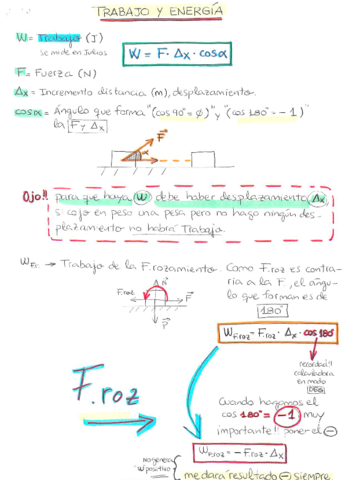 TRABAJO Y ENERGÍA
W = Trabajo (J)
se mide en Julios
W = F · Δx · cosα
F = Fuerza (N)
Δx = Incremento distancia (m), desplazamiento.
cosα = Ángulo que forma "(cos 90º = ∅)" y "(cos 180º = -1)"
la F y Δx
F
α
Ojo!! para que haya W debe haber desplazamiento Δx
si cojo en peso una pesa pero no hago ningún des-
plazamiento no habrá Trabajo.
WFr. → Trabajo de la F.rozamiento. Como F.roz es contra-
ria a la F, el ángu-
lo que forman es de
180º
N
F.roz
F
P
WF.roz = F.roz · Δx · cos 180
recordad!!
calculadora
en modo
DEG
F.roz
Cuando hagamos el
cos 180º = -1 muy
importante!! poner el -
WF.roz = - F.roz · Δx
No genera
W positivo
me dará resultado - siempre